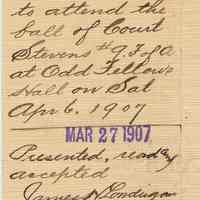 to attend the
ball of Court
Stevens #9 F of A
at Odd Fellows
Hall on Sat
Apr 6, 1907
MAR 27 1907
Presented, read &
accepted
James